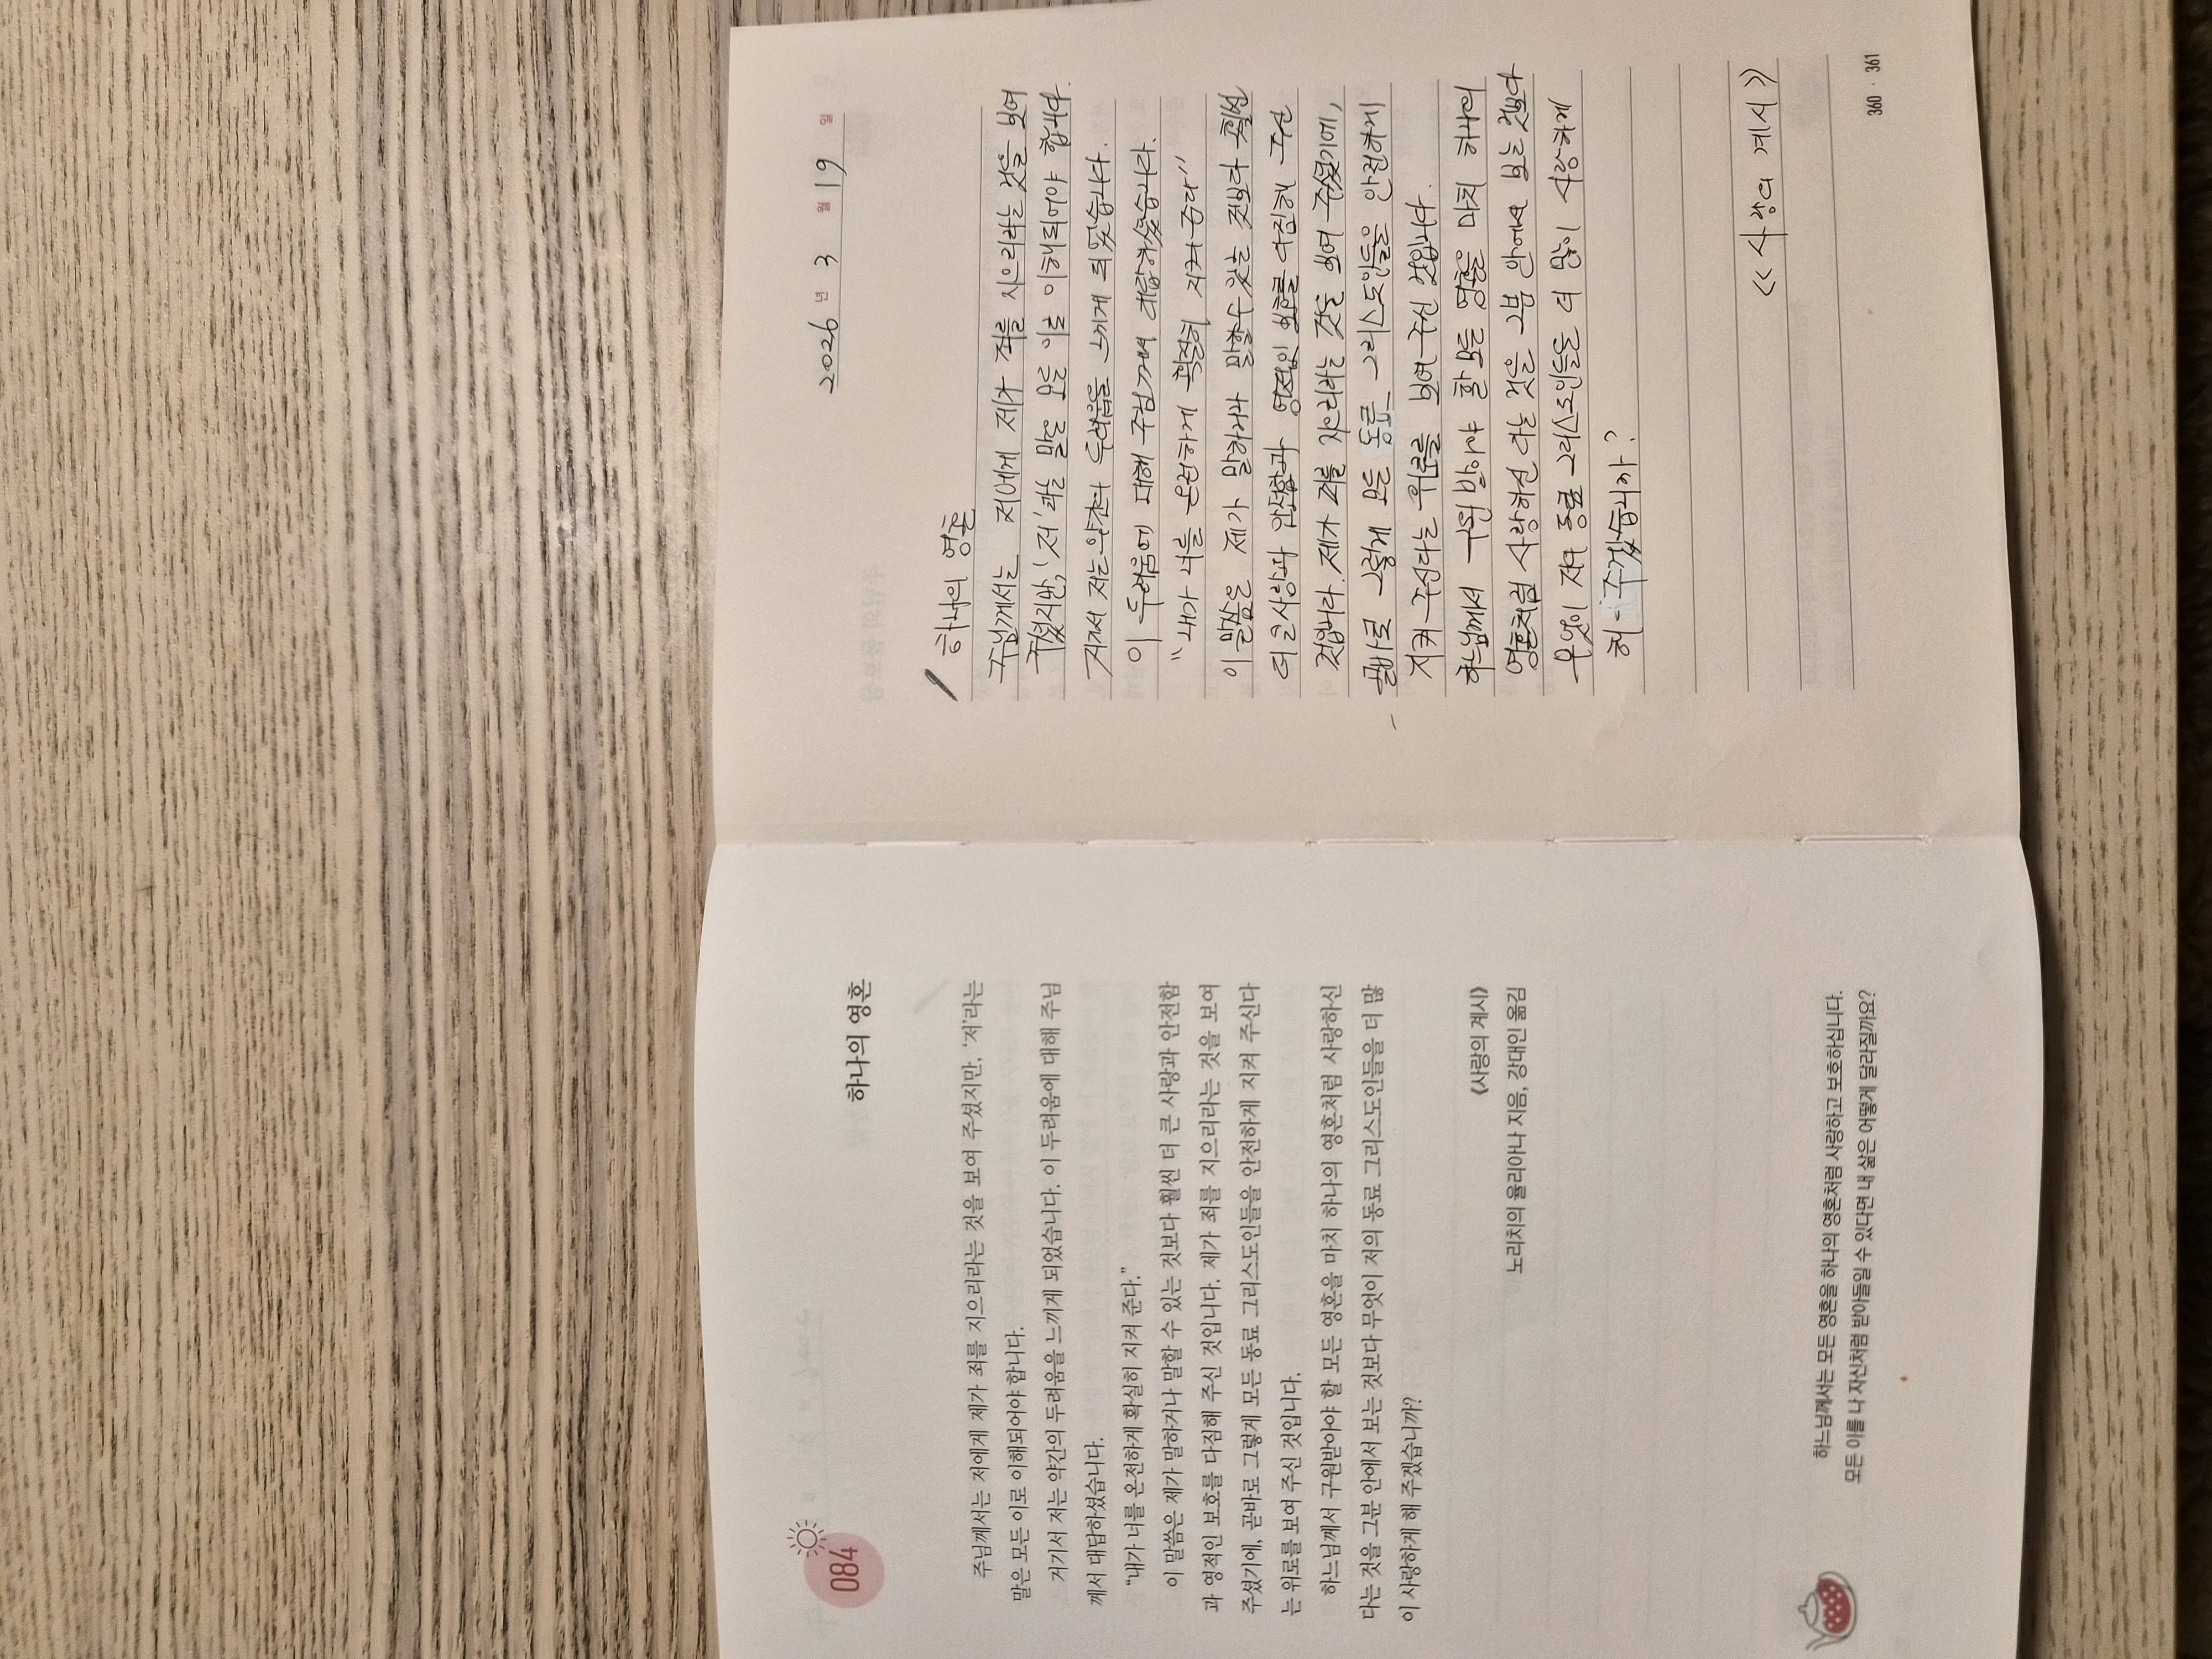 084
하나의 영혼
주님께서는 저에게 제가 죄를 지으리라는 것을 보여 주셨지만, ‘저’라는
말은 모든 이로 이해되어야 합니다.
거기서 저는 약간의 두려움을 느끼게 되었습니다. 이 두려움에 대해 주님
께서 대답하셨습니다.
“내가 너를 온전하게 확실히 지켜 준다.”
이 말씀은 제가 말하거나 말할 수 있는 것보다 훨씬 더 큰 사랑과 안전함
과 영적인 보호를 다짐해 주신 것입니다. 제가 죄를 지으리라는 것을 보여
주셨기에, 곧바로 그렇게 모든 동료 그리스도인들을 안전하게 지켜 주신다
는 위로를 보여 주신 것입니다.
하느님께서 구원받아야 할 모든 영혼을 마치 하나의 영혼처럼 사랑하신
다는 것을 그분 안에서 보는 것보다 무엇이 저의 동료 그리스도인들을 더 많
이 사랑하게 해 주겠습니까?
《사랑의 계시》
노리치의 율리아나 지음, 강대인 옮김
하느님께서는 모든 영혼을 하나의 영혼처럼 사랑하고 보호하십니다.
모든 이를 나 자신처럼 받아들일 수 있다면 내 삶은 어떻게 달라질까요?
2026 년 3 월 19 일
하나의 영혼
주님께서는 저에게 제가 죄를 지으리라는 것을 보여
주셨지만, '저'라는 말은 모든 이로 이해되어야 합니다.
거기서 저는 약간의 두려움을 느끼게 되었습니다.
이 두려움에 대해 주님께서 대답하셨습니다.
“내가 너를 온전하게 확실히 지켜 준다”
이 말씀은 제가 말하거나 말할 수 있는 것보다 훨씬
더 큰 사랑과 안전함과 영적인 보호를 다짐해 주신
것입니다. 제가 죄를 지으리라는 것을 보여 주셨기에,
곧바로 그렇게 모든 동료 그리스도인들을 안전하게
지켜 주신다는 위로를 보여 주신 것입니다.
하느님께서 구원 받아야 할 모든 영혼을 마치 하나의
영혼처럼 사랑하신 다는 것을 그분 안에서 보는 것보다
무엇이 저의 동료 그리스도인들을 더 많이 사랑하게
해 주겠습니까?
<<사랑의 계시>>
360 · 361